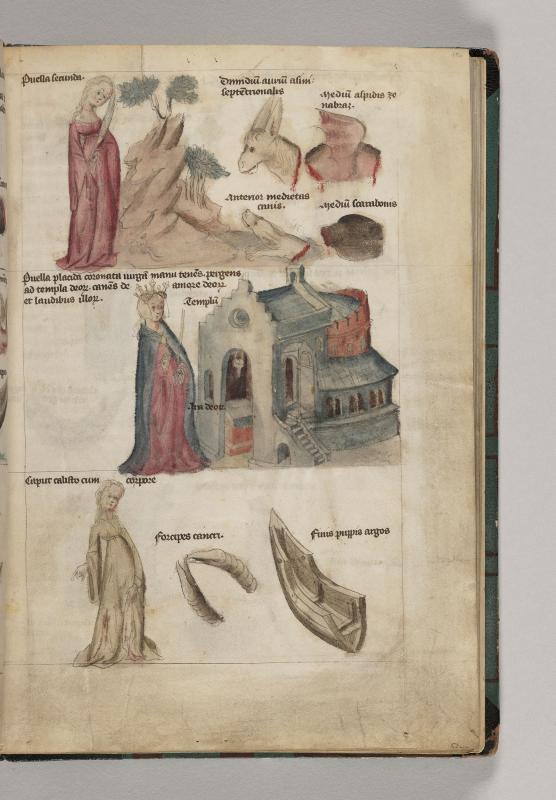 Puella secunda.
Dimidiū auriū asini
septētrionalis
Mediū aspidis ze
nabraz.
Anterior medietas
canis.
Mediū scarabonis
Puella placida coronata uirgā manu tenēs. pergens
ad templa deoꝝ. canēs de amore deoꝝ.
et laudibus illoꝝ.
Templū
Ara deoꝝ.
Caput calisto cum corpore
Forcipes cancri.
Finis puppis argos